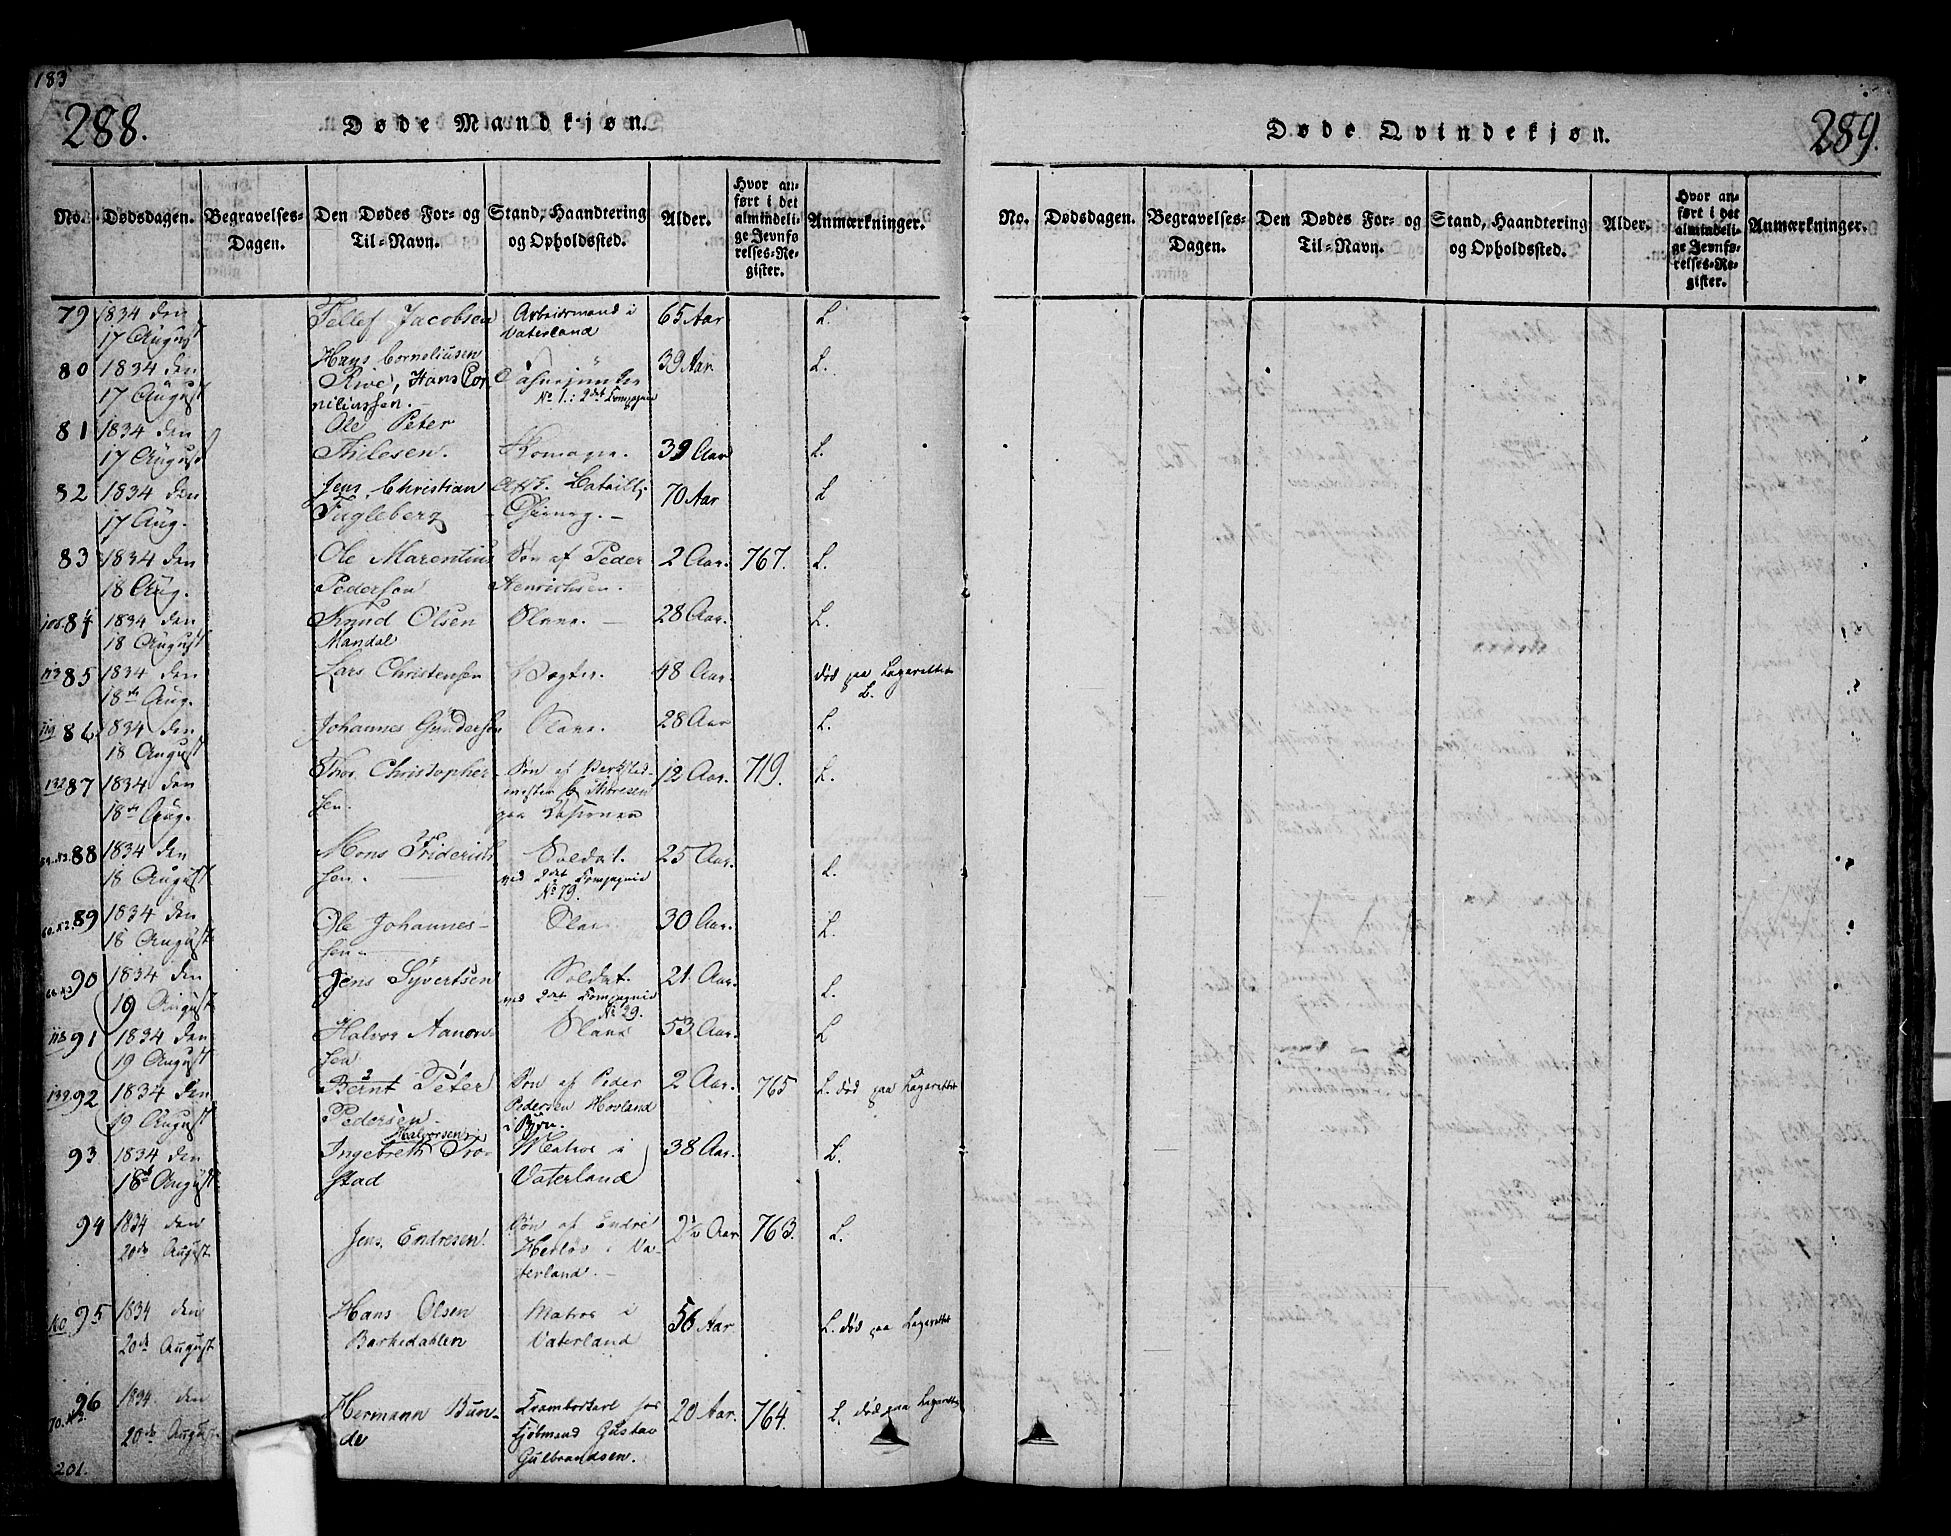 183
288.
Døde Mandkjøn.
No. Dødsdagen. Begravelses-Dagen. Den Dødes For- og Til-Navn. Stand, Haandtering og Opholdssted. Alder. Hvor anført i det almindelige Jevnførelses-Register. Anmærkninger.
79 1834 den Tellef Jacobsen Arbeidsmand i 65 Aar L.
17 August Vaterland
80 1834 den Hans Corneliusen 39 Aar L.
17 August Rive, Hans Cor-
No. 1: 2det Compagnie
niliussen.
81 1834 den Ole Peter
17 August Thilesen. 39 Aar L.
82 1834 den Jens Christian 70 Aar L
17 Aug. Fugleberg
83 1834 den Ole Marentius Søn af Peder 2 Aar. 767. L.
18 Aug. Pedersen Henrichsen.
108. 84 1834 den Knud Olsen Slave. 28 Aar. L.
18 August Mandal
113 85 1834 den Lars Christensen Vægter. 48 Aar. død paa Lazarettet
18de Aug. L.
119 86. 1834 den Johannes Gundersen Slave. 28 Aar L.
18 August
132 87 1834 den Thor Christopher- Søn af 12 Aar. 719. L.
18de Aug. sen. mester C Thoresen
paa
88 1834 den Mons Friderich- Soldat. 25 Aar. L.
18 August sen. ved 2det Compagnie
No 79.
89 1834 den Ole Johannes- Slave. 30 Aar. L.
18 August sen
90 1834 den Jens Syvertsen Soldat. 21 Aar. L.
19 August ved 2det Compagnie
No 29.
91 1834 den Halvor Aanon- Slave 53 Aar. L
19 August sen
139 92 1834 den Bernt Peter Søn af Peder 2 Aar. 765 L. død paa Lazarettet
19 August Pedersen. Pedersen Hovland
i Byen.
Halvorsen
93 1834 den Ingebreth Tro- Matros i 38 Aar. L.
18de August stad Vaterland
94 1834 den Jens Endresen. Søn af Endre 2½ Aar 763. L.
20de August i Va-
terland.
140 95 1834 den Hans Olsen Matros i 56 Aar. L. død paa Lazarettet
20de August Barkedahlen Vaterland
96 1834 den Hermann Bun- Krambodkarl hos 20 Aar. 764. L. død paa Lazarettet
20de August de Kjøbmand Gustav
Gulbrandsen.
201.
Døde Qvindekjøn.
289.
No. Dødsdagen. Begravelses-Dagen. Den Dødes For- og Til-Navn. Stand, Haandtering og Opholdssted. Alder. Hvor anført i det almindelige Jevnførelses-Register. Anmærkninger.